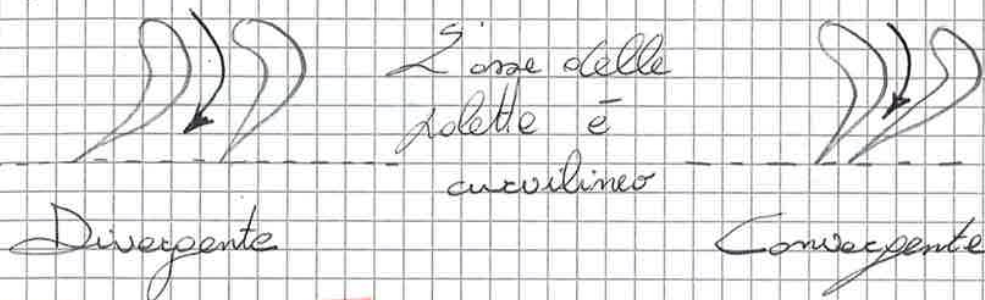 L'asse delle
palette è
curvilineo
Divergente
Convergente